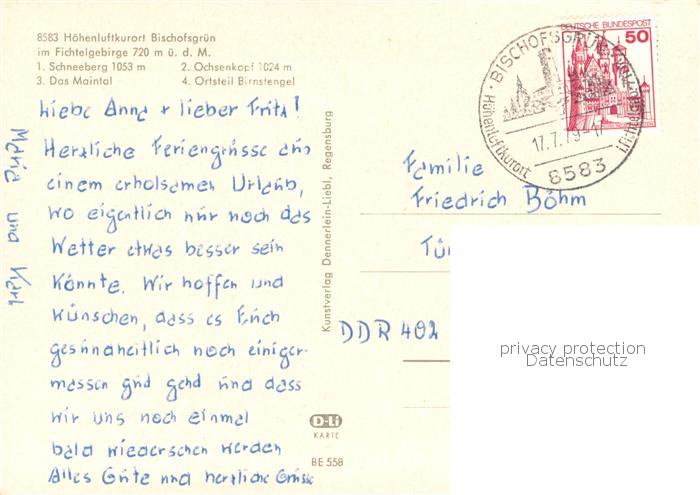 8583 Höhenluftkurort Bischofsgrün
im Fichtelgebirge 720 m ü. d. M.
1. Schneeberg 1053 m 2. Ochsenkopf 1024 m
3. Das Maintal 4. Ortsteil Birnstengel
Liebe Anna + lieber Fritz!
Herzliche Feriengrüsse aus
einem erholsamen Urlaub,
wo eigentlich nur noch das
Wetter etwas besser sein
könnte. Wir hoffen und
wünschen, dass es Euch
gesundheitlich noch einiger-
massen gud gehd und dass
wir uns noch einmal
bald wiedersehen werden
Alles Gute und herzliche Grüsse
Maria und Karl
Kunstverlag Dennerlein-Liebl, Regensburg
D-Li
KARTE
BE 558
DEUTSCHE BUNDESPOST
50
BISCHOFSGRÜN
Höhenluftkurort
17.7.79-17
8583
Familie
Friedrich Böhm
DDR 402
privacy protection
Datenschutz